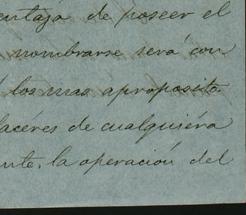 ventaja de poseer el
nombrarse será con
los mas aproposito
lacéres de cualquiéra
ante, la operación del